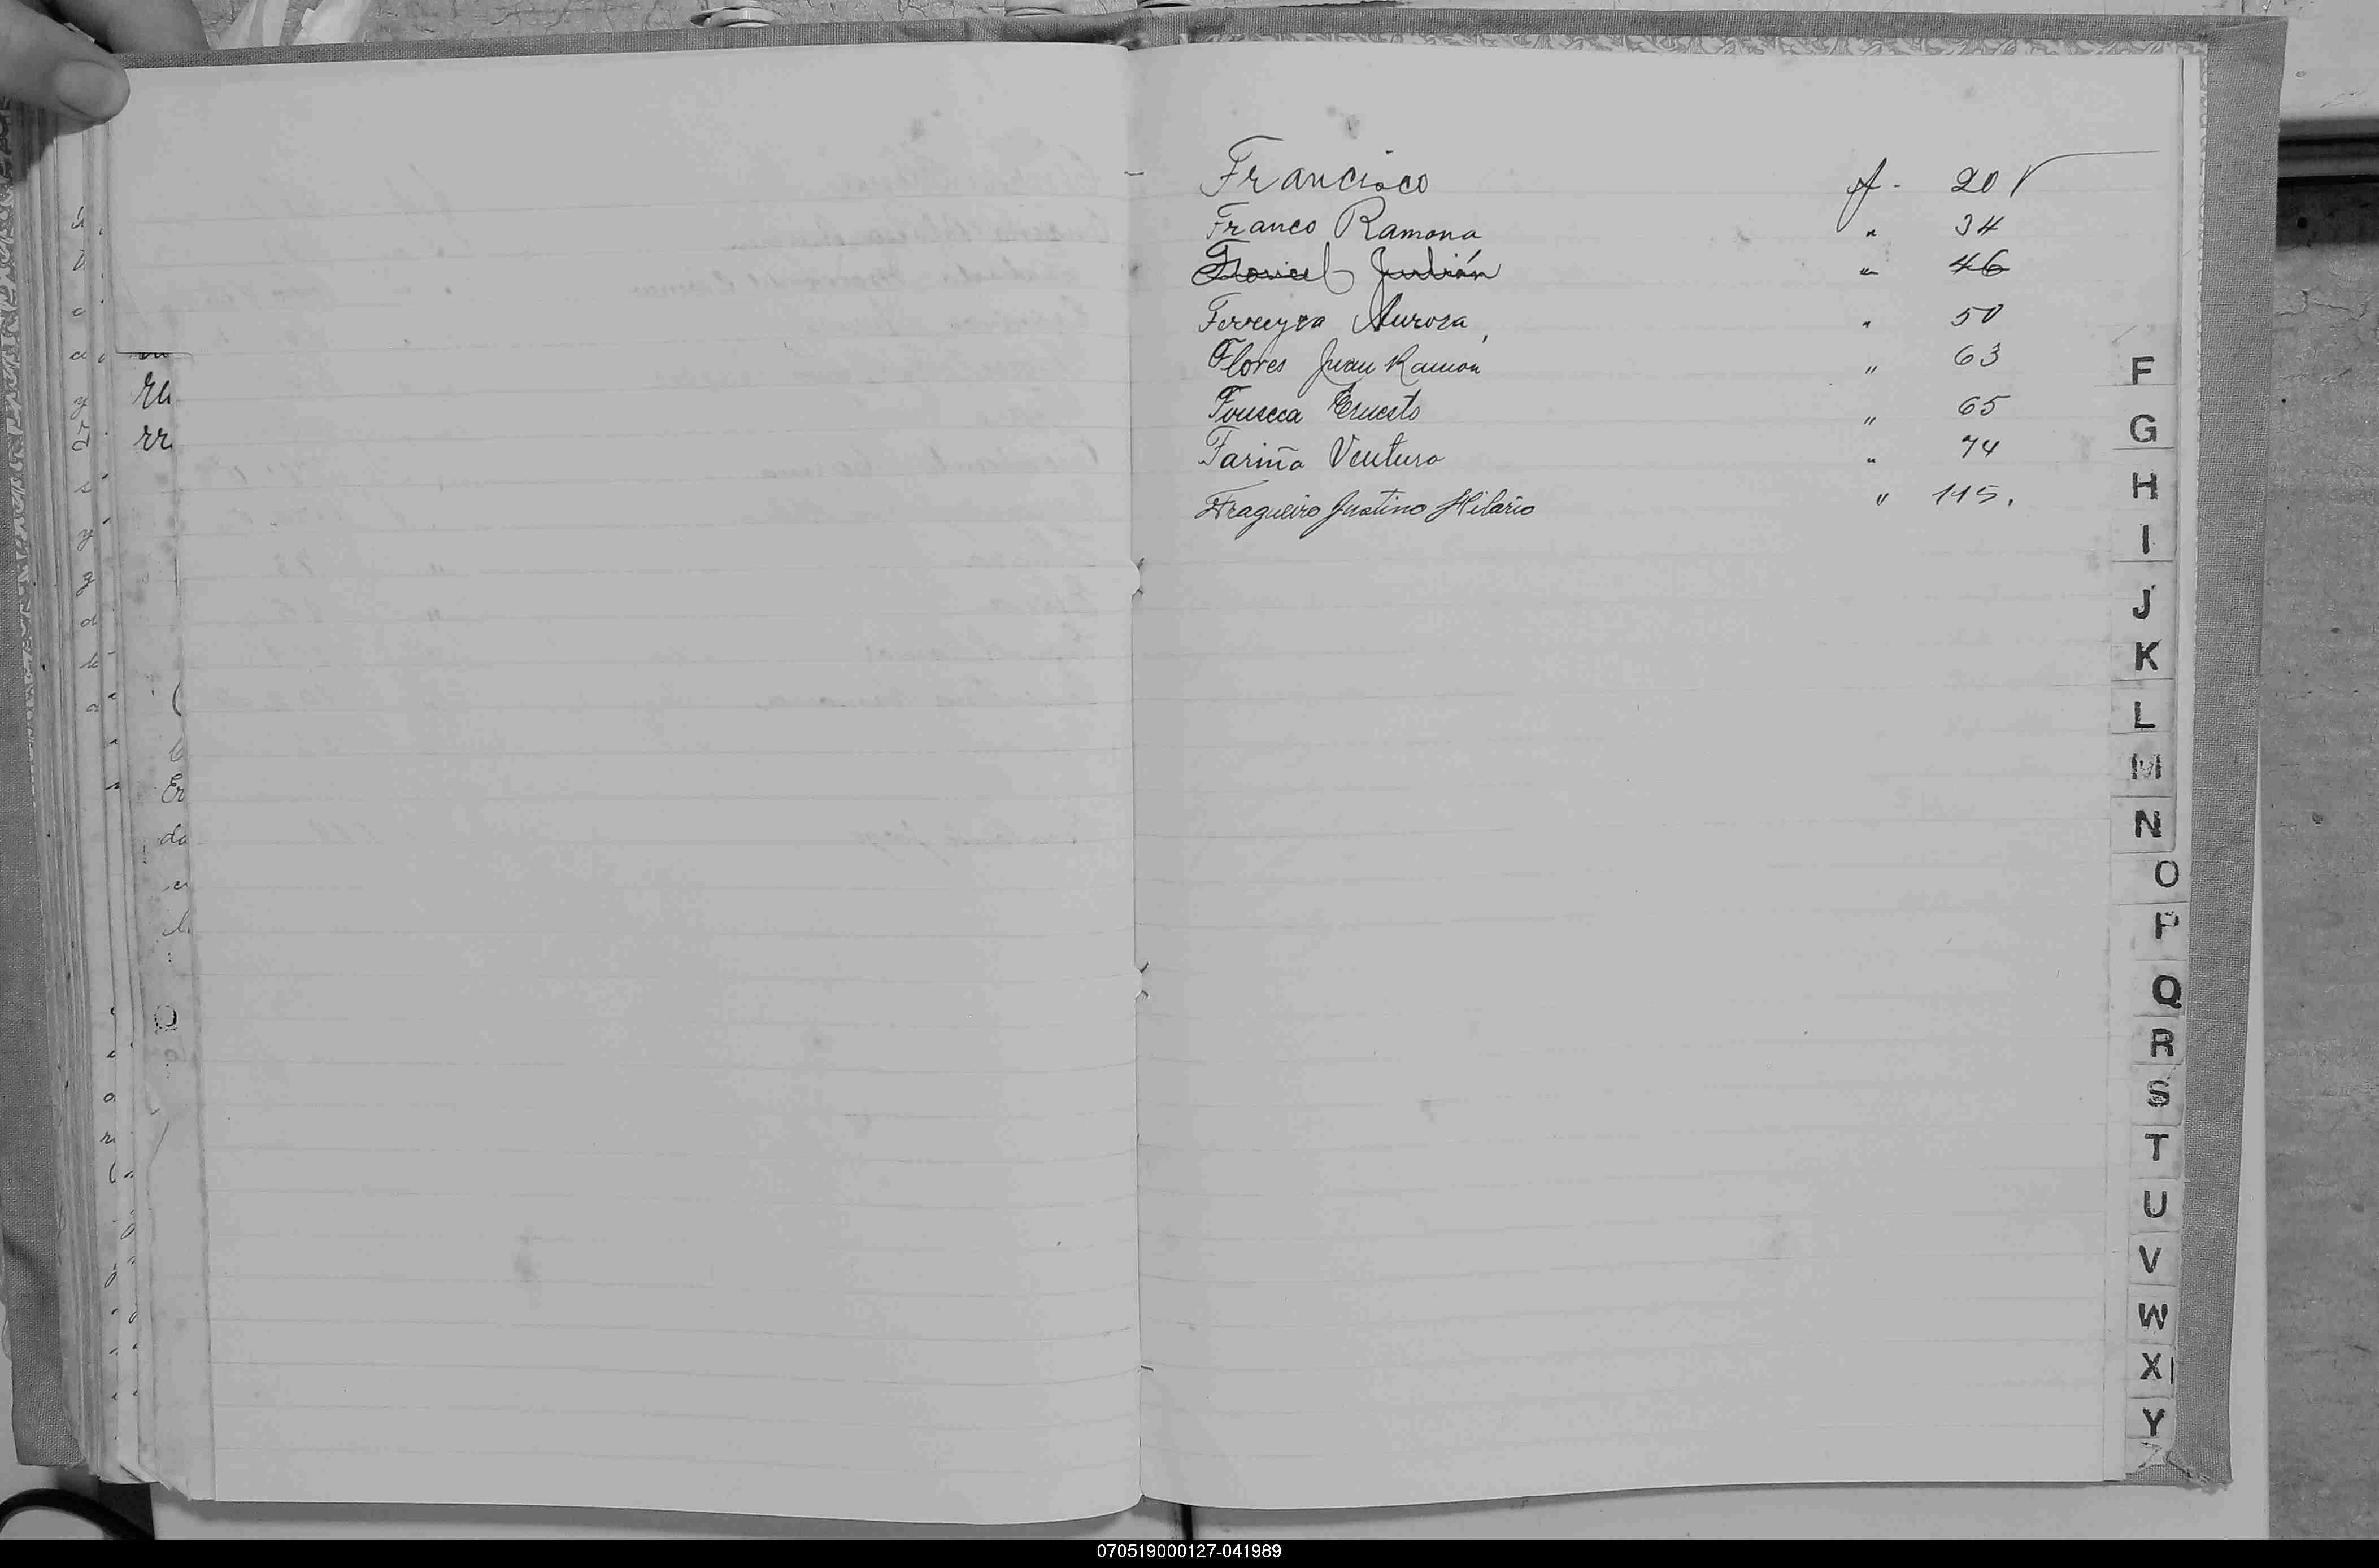 Francisco f - 20 v
Franco Ramona " 34
Julián " 46
Ferreyra Aurora " 50
Flores Juan Ramón " 63
Fonseca Ernesto " 65
Fariña Ventura " 74
Fragueiro Justino Hilario " 115.
F
G
H
I
J
K
L
M
N
O
P
Q
R
S
T
U
V
W
X
Y
Z
070519000127-041989